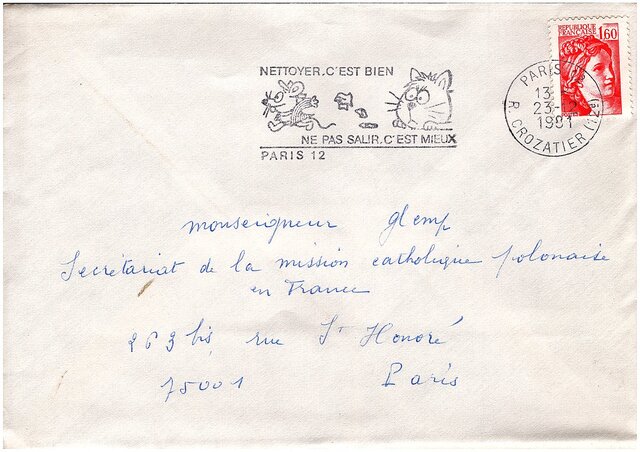 NETTOYER.C'EST BIEN
NE PAS SALIR.C'EST MIEUX
PARIS 12
REPUBLIQUE
FRANÇAISE
1,60
PARIS
13
23-12
1981
R. CROZATIER (12e)
monseigneur glemp
Secrétariat de la mission catholique polonaise
en France
263 bis rue St Honoré
75001 Paris